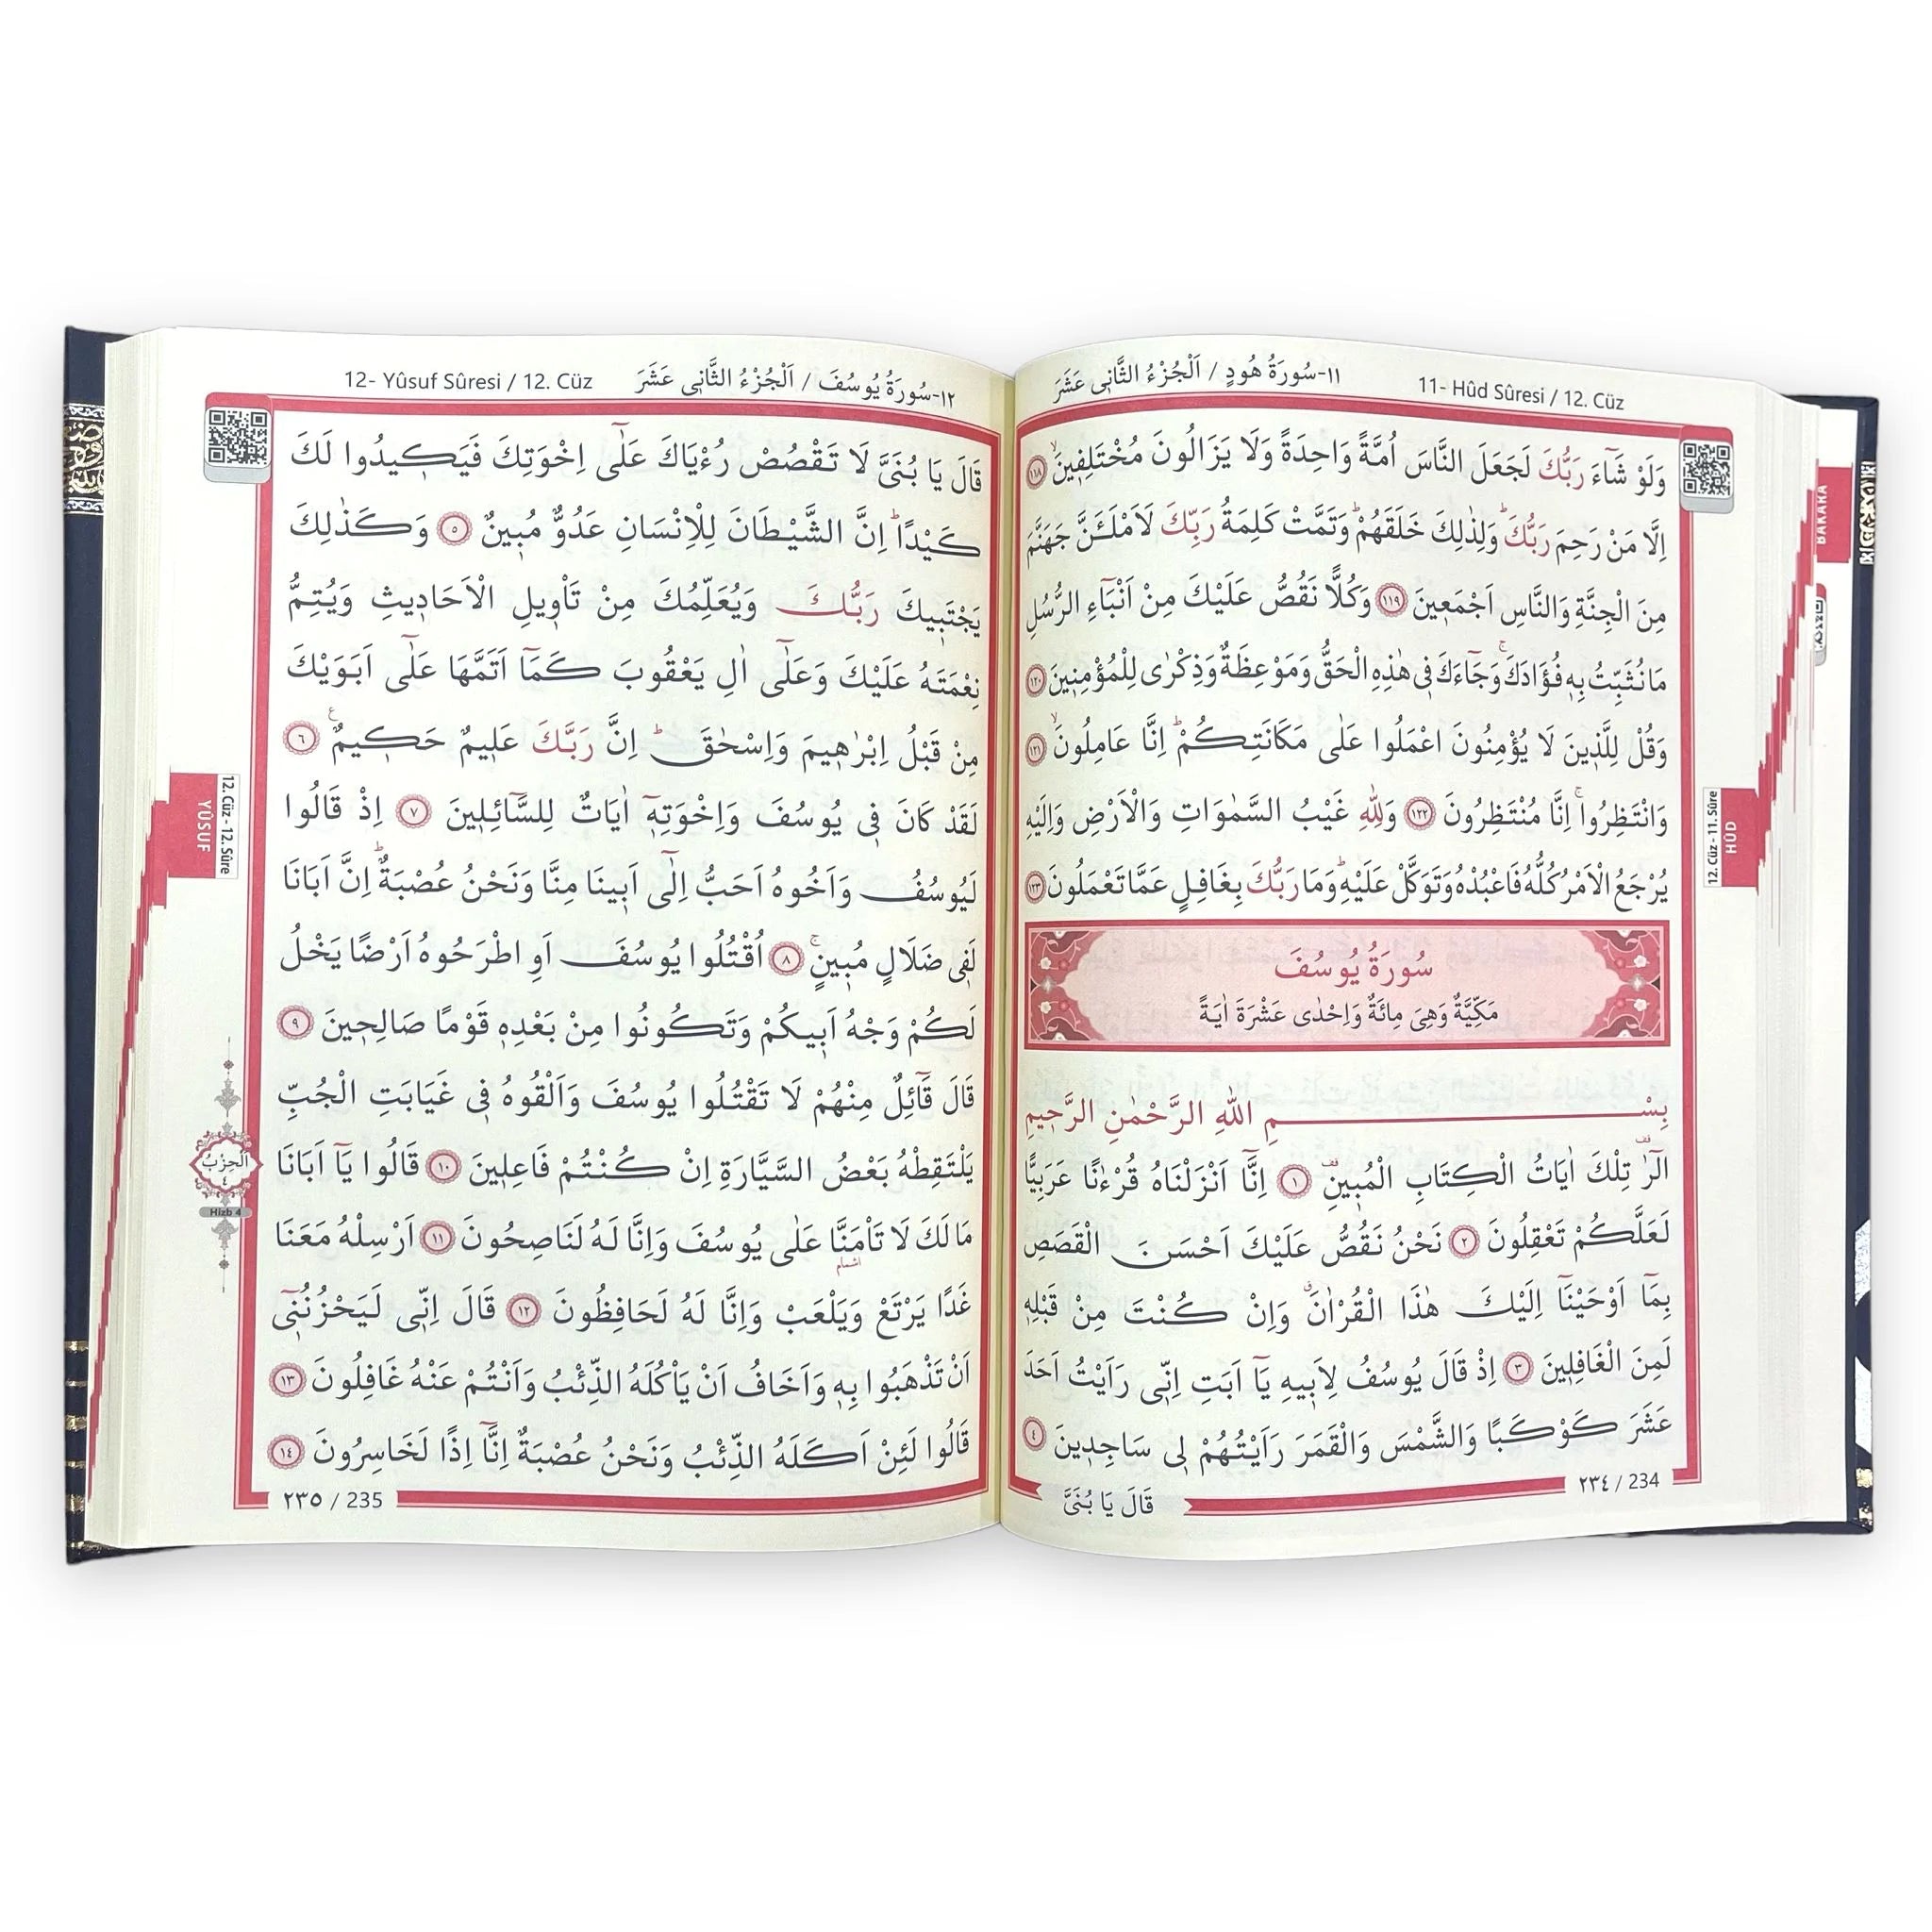 11- Hûd Sûresi / 12. Cüz
١١-سُورَةُ هُودٍ / اَلْجُزْءُ الثَّانِى عَشَرَ
وَلَوْ شَٓاءَ رَبُّكَ لَجَعَلَ النَّاسَ اُمَّةً وَاحِدَةً وَلَا يَزَالُونَ مُخْتَلِفِينَۙ ﴿١١٨﴾
اِلَّا مَنْ رَحِمَ رَبُّكَۜ وَلِذٰلِكَ خَلَقَهُمْۜ وَتَمَّتْ كَلِمَةُ رَبِّكَ لَاَمْلَـَٔنَّ جَهَنَّمَ
مِنَ الْجِنَّةِ وَالنَّاسِ اَجْمَعِينَ ﴿١١٩﴾ وَكُلًّا نَقُصُّ عَلَيْكَ مِنْ اَنْبَٓاءِ الرُّسُلِ
مَا نُثَبِّتُ بِهِ فُؤَادَكَۚ وَجَٓاءَكَ فِى هٰذِهِ الْحَقُّ وَمَوْعِظَةٌ وَذِكْرٰى لِلْمُؤْمِنِينَ ﴿١٢٠﴾
وَقُلْ لِلَّذِينَ لَا يُؤْمِنُونَ اعْمَلُوا عَلٰى مَكَانَتِكُمْۜ اِنَّا عَامِلُونَۙ ﴿١٢١﴾
وَانْتَظِرُواۚ اِنَّا مُنْتَظِرُونَ ﴿١٢٢﴾ وَلِلّٰهِ غَيْبُ السَّمٰوَاتِ وَالْاَرْضِ وَاِلَيْهِ
يُرْجَعُ الْاَمْرُ كُلُّهُ فَاعْبُدْهُ وَتَوَكَّلْ عَلَيْهِۜ وَمَا رَبُّكَ بِغَافِلٍ عَمَّا تَعْمَلُونَ ﴿١٢٣﴾
سُورَةُ يُوسُفَ
مَكِّيَّةٌ وَهِىَ مِائَةٌ وَاِحْدٰى عَشْرَةَ اٰيَةً
بِسْمِ اللّٰهِ الرَّحْمٰنِ الرَّحِيمِ
الٓرٰ تِلْكَ اٰيَاتُ الْكِتَابِ الْمُبِينِ ﴿١﴾ اِنَّٓا اَنْزَلْنَاهُ قُرْءٰنًا عَرَبِيًّا
لَعَلَّكُمْ تَعْقِلُونَ ﴿٢﴾ نَحْنُ نَقُصُّ عَلَيْكَ اَحْسَنَ الْقَصَصِ
بِمَٓا اَوْحَيْنَٓا اِلَيْكَ هٰذَا الْقُرْاٰنَۗ وَاِنْ كُنْتَ مِنْ قَبْلِهِ
لَمِنَ الْغَافِلِينَ ﴿٣﴾ اِذْ قَالَ يُوسُفُ لِاَبِيهِ يَٓا اَبَتِ اِنِّى رَاَيْتُ اَحَدَ
عَشَرَ كَوْكَبًا وَالشَّمْسَ وَالْقَمَرَ رَاَيْتُهُمْ لِى سَاجِدِينَ ﴿٤﴾
٢٣٤ / 234
قَالَ يَا بُنَىَّ
12. Cüz - 11. Sûre
HÛD
BAKARA
12- Yûsuf Sûresi / 12. Cüz
١٢-سُورَةُ يُوسُفَ / اَلْجُزْءُ الثَّانِى عَشَرَ
قَالَ يَا بُنَىَّ لَا تَقْصُصْ رُءْيَاكَ عَلٰٓى اِخْوَتِكَ فَيَكِيدُوا لَكَ
كَيْدًاۜ اِنَّ الشَّيْطَانَ لِلْاِنْسَانِ عَدُوٌّ مُبِينٌ ﴿٥﴾ وَكَذٰلِكَ
يَجْتَبِيكَ رَبُّكَ وَيُعَلِّمُكَ مِنْ تَاْوِيلِ الْاَحَادِيثِ وَيُتِمُّ
نِعْمَتَهُ عَلَيْكَ وَعَلٰٓى اٰلِ يَعْقُوبَ كَمَٓا اَتَمَّهَا عَلٰٓى اَبَوَيْكَ
مِنْ قَبْلُ اِبْرٰهِيمَ وَاِسْحٰقَۜ اِنَّ رَبَّكَ عَلِيمٌ حَكِيمٌ ﴿٦﴾
لَقَدْ كَانَ فِى يُوسُفَ وَاِخْوَتِهِٓ اٰيَاتٌ لِلسَّٓائِلِينَ ﴿٧﴾ اِذْ قَالُوا
لَيُوسُفُ وَاَخُوهُ اَحَبُّ اِلٰٓى اَبِينَا مِنَّا وَنَحْنُ عُصْبَةٌۜ اِنَّ اَبَانَا
لَفِى ضَلَالٍ مُبِينٍۚ ﴿٨﴾ اُقْتُلُوا يُوسُفَ اَوِ اطْرَحُوهُ اَرْضًا يَخْلُ
لَكُمْ وَجْهُ اَبِيكُمْ وَتَكُونُوا مِنْ بَعْدِهِ قَوْمًا صَالِحِينَ ﴿٩﴾
قَالَ قَٓائِلٌ مِنْهُمْ لَا تَقْتُلُوا يُوسُفَ وَاَلْقُوهُ فِى غَيَابَتِ الْجُبِّ
يَلْتَقِطْهُ بَعْضُ السَّيَّارَةِ اِنْ كُنْتُمْ فَاعِلِينَ ﴿١٠﴾ قَالُوا يَٓا اَبَانَا
مَا لَكَ لَا تَاْمَنَّا عَلٰى يُوسُفَ وَاِنَّا لَهُ لَنَاصِحُونَ ﴿١١﴾ اَرْسِلْهُ مَعَنَا
اشمام
غَدًا يَرْتَعْ وَيَلْعَبْ وَاِنَّا لَهُ لَحَافِظُونَ ﴿١٢﴾ قَالَ اِنِّى لَيَحْزُنُنِٓى
اَنْ تَذْهَبُوا بِهِ وَاَخَافُ اَنْ يَاْكُلَهُ الذِّئْبُ وَاَنْتُمْ عَنْهُ غَافِلُونَ ﴿١٣﴾
قَالُوا لَئِنْ اَكَلَهُ الذِّئْبُ وَنَحْنُ عُصْبَةٌ اِنَّٓا اِذًا لَخَاسِرُونَ ﴿١٤﴾
٢٣٥ / 235
12. Cüz - 12. Sûre
YÛSUF
اَلْحِزْبُ
٤
Hizb 4